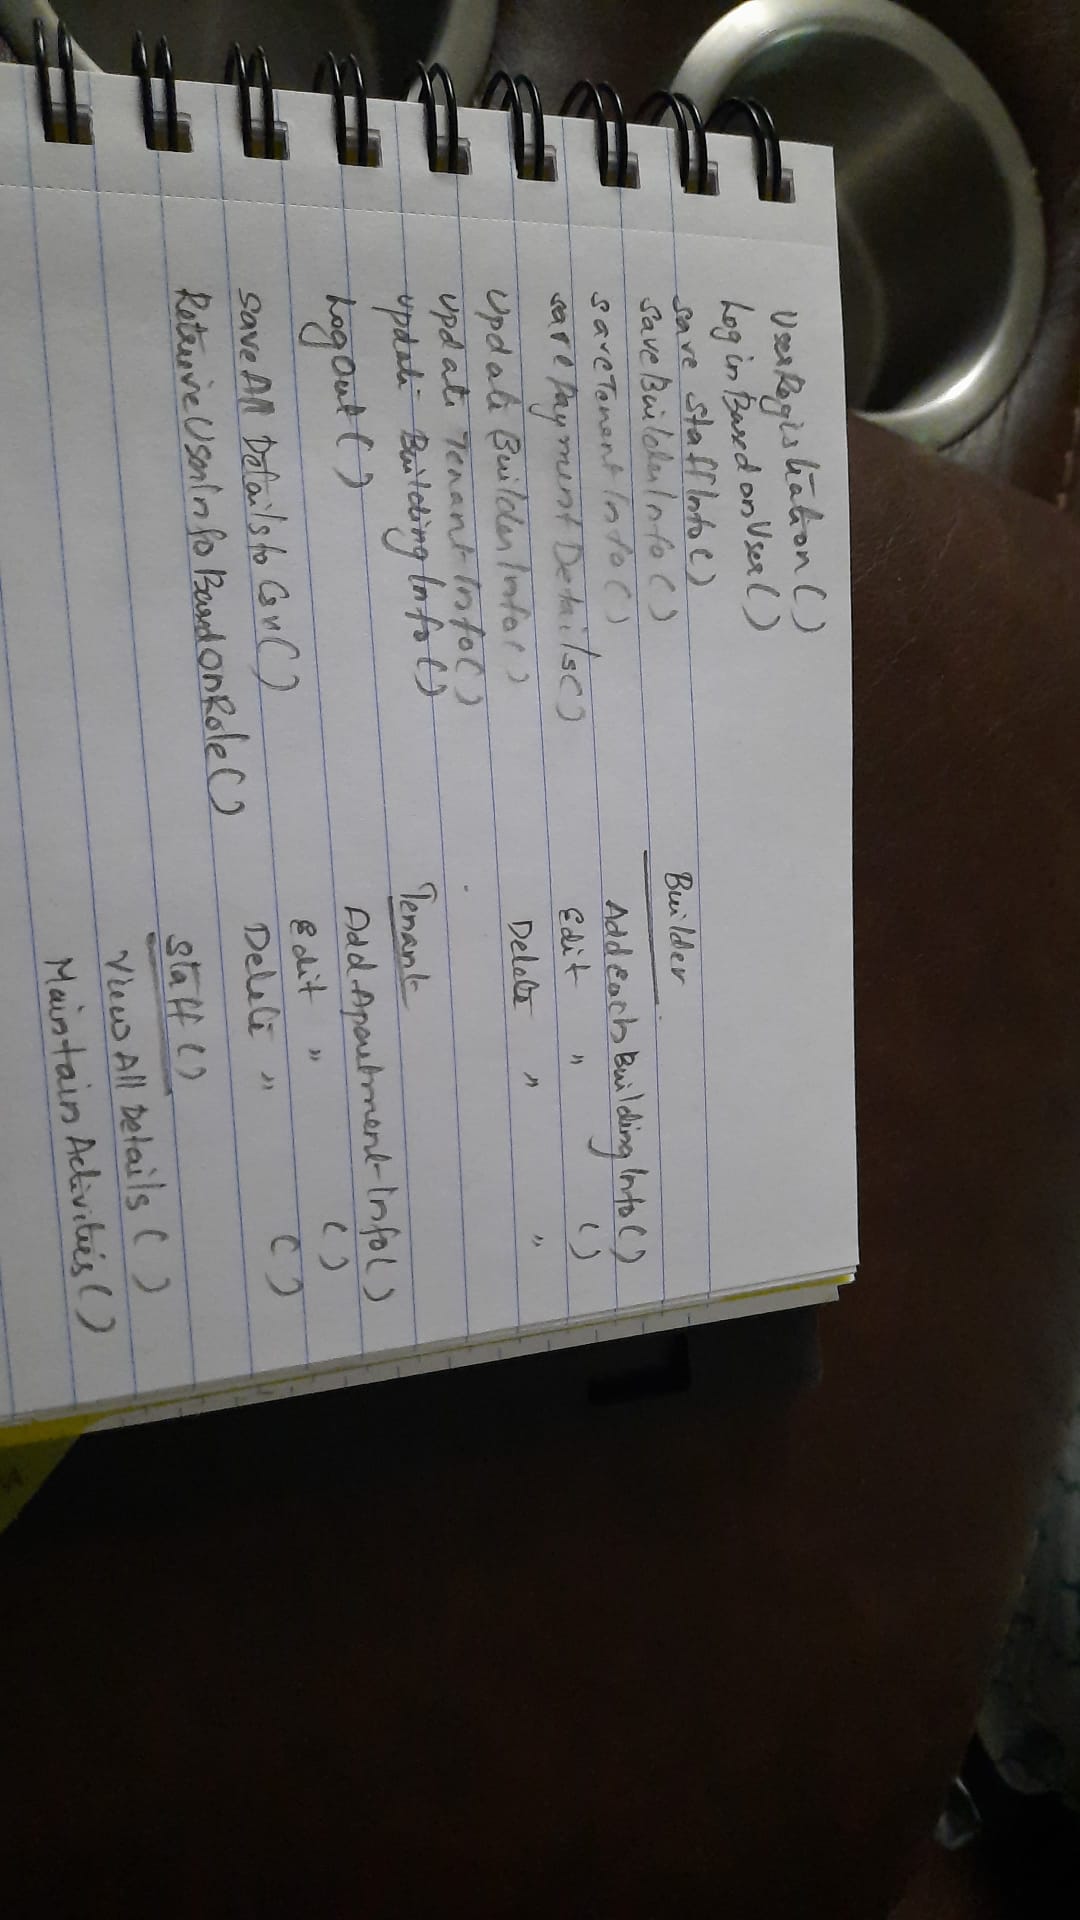 UserRegistration()
LoginBasedonUser()
save StaffInfo()
saveBuilderInfo()
saveTenentInfo()
savePaymentDetails()
Update BuilderInfo()
update TenantInfo()
update BuildingInfo()
LogOut()
saveAll Detailsto Csv()
RetrieveUserInfoBasedOnRole()
Builder
AddEachBuildingInfo()
Edit " ()
Delete " "
Tenant
Add ApartmentInfo()
Edit " ()
Delete " ()
Staff()
ViewAll Details ()
Maintain Activities()